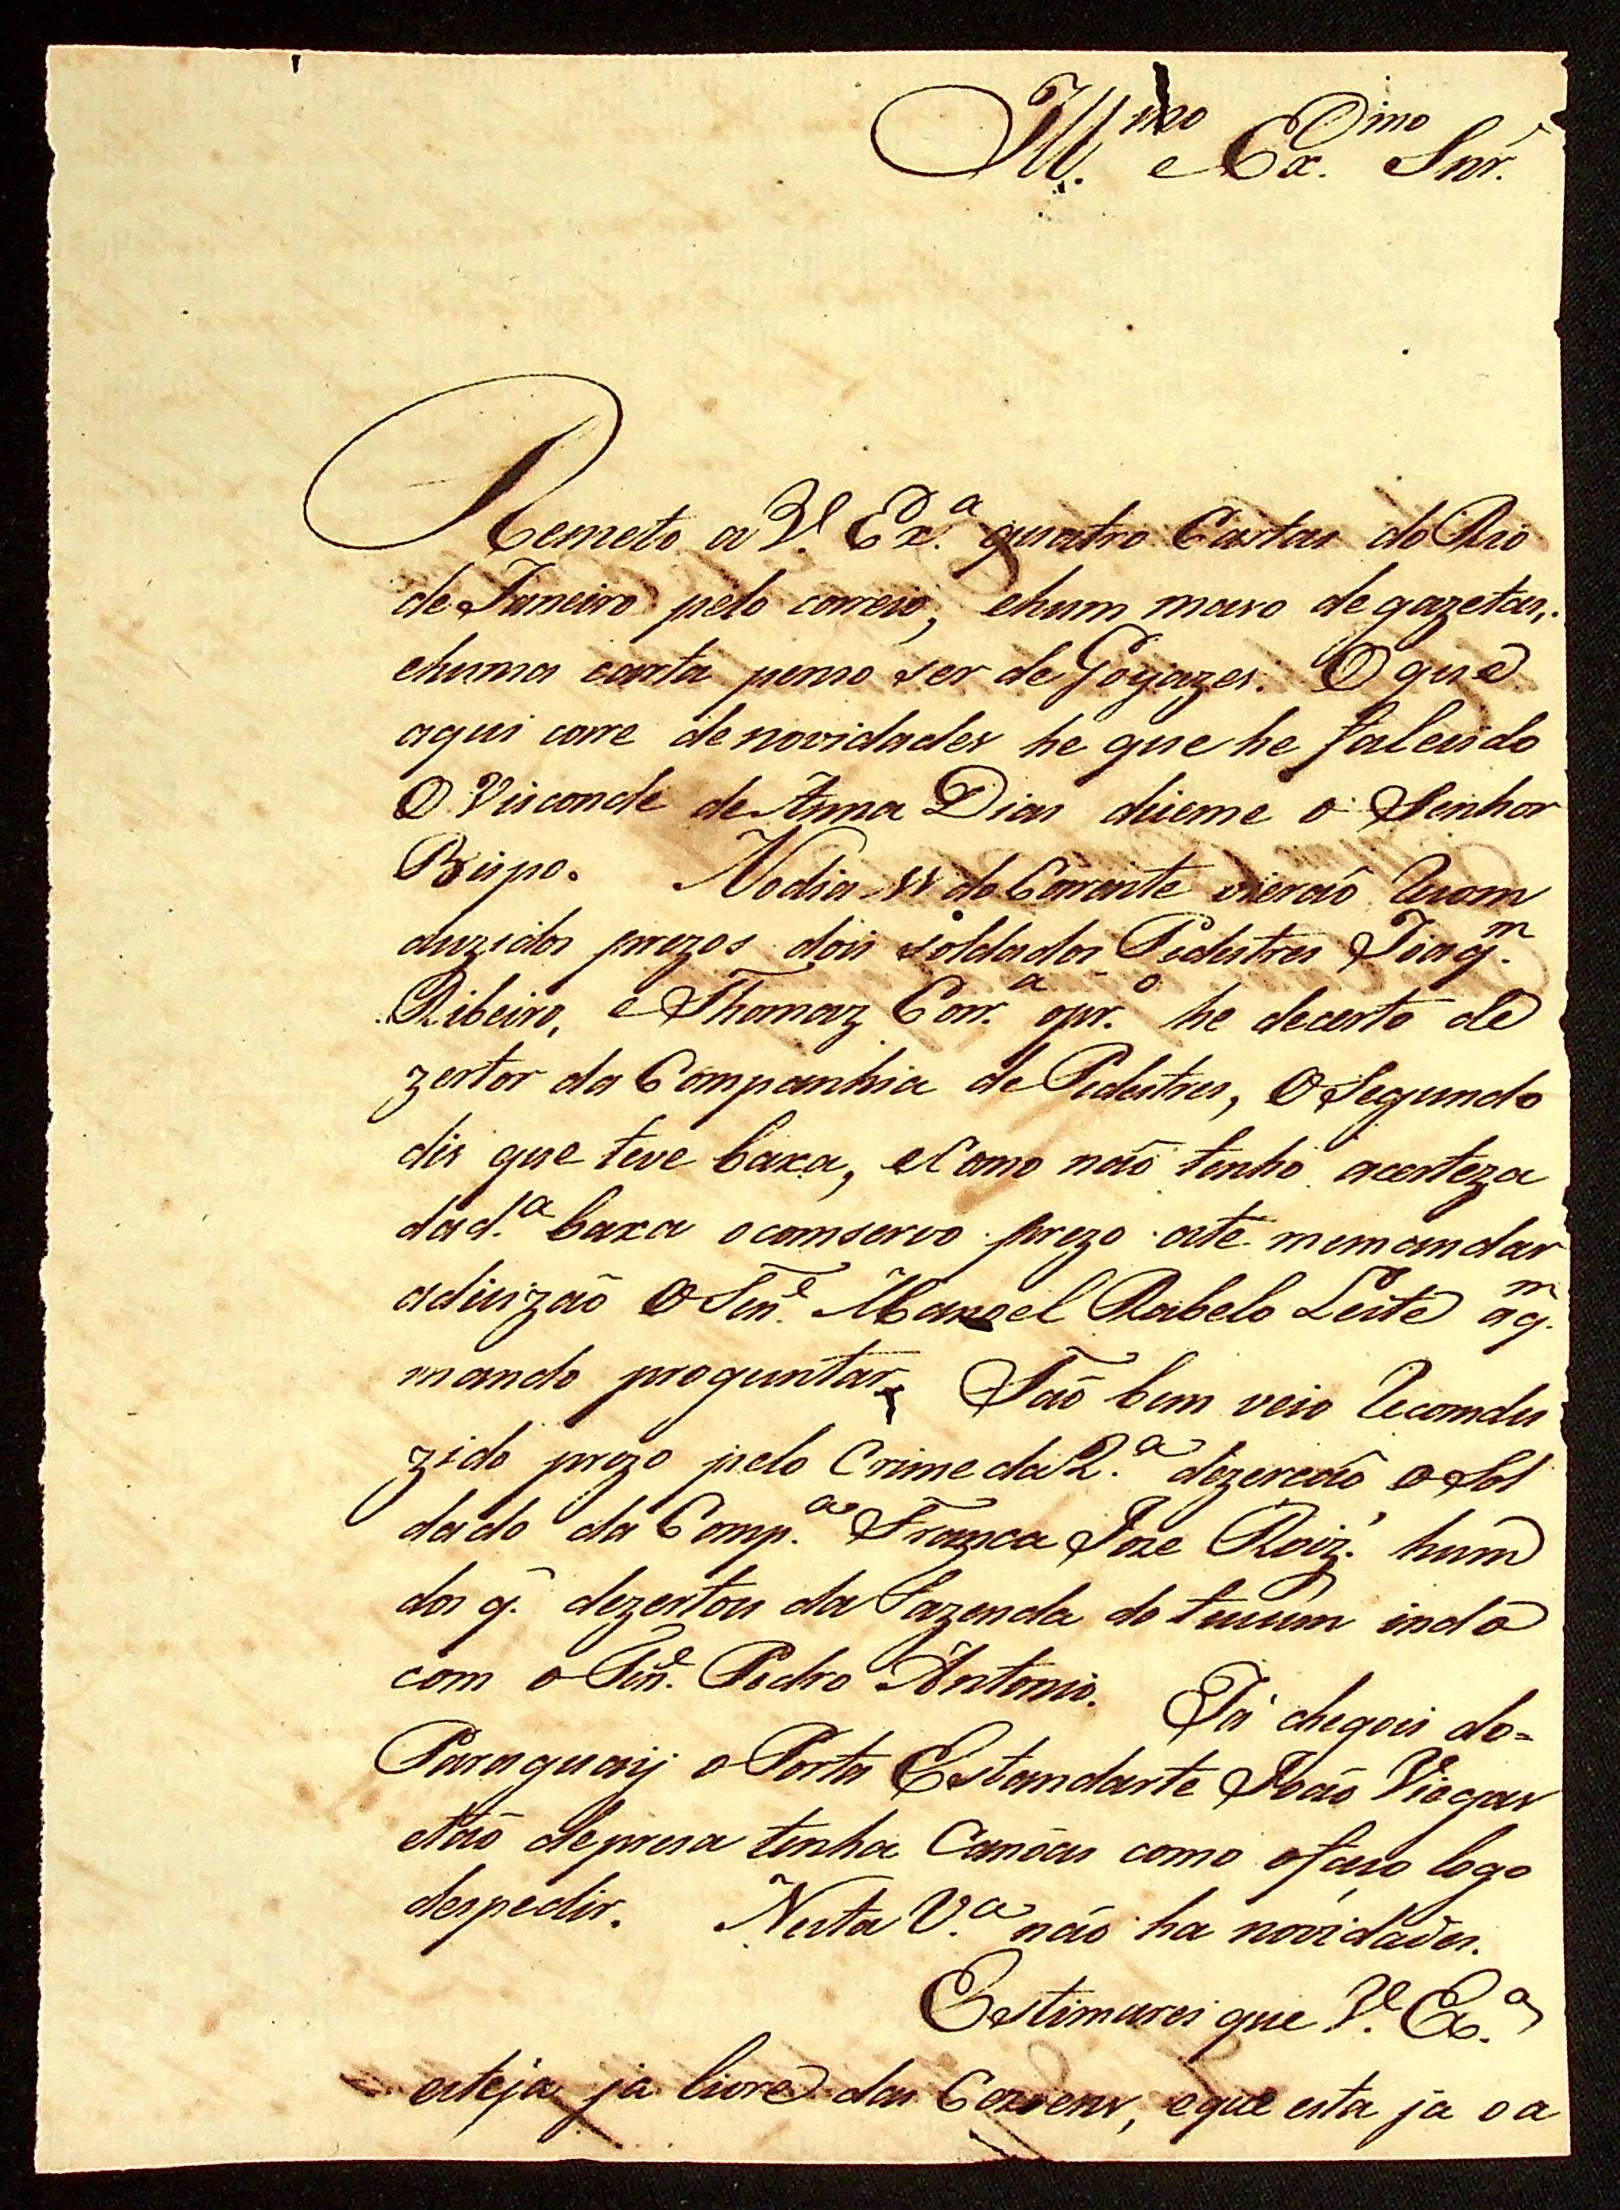 Ill.mo e Ex.mo Snr.
Remeto a V. Ex.a quatro Cartas do Rio
de Janeiro pelo correio, ehum maso de gazetas,
ehuma carta penso ser de Goyazes. O que
aqui corre de novidades he que he falesido
O Visconde de Anna Dias diseme o Senhor
Bispo. No dia 11 do Corrente vierão Recom
duzidos prezos dois soldados Pedestres Joaq.m
Ribeiro, e Thomaz Corr.a opr.o he decerto de
zertor da Companhia de Pedestres, O Segundo
dis que teve baxa, eComo não tenho acerteza
dad.a baxa oconservo prezo ate memandar
adiuizão O Ten.e Manoel Rabelo Leite aq.m
mando proguntar. Tão bem veio Recomdu
zido prezo pelo Crime da 2.a dezerção o Sol
dado da Comp.a Franca Joze Roiz. hum
dos q. dezertou da Fazenda do indo
com o Ten.e Pedro Antonio. Já chegou do=
Paraguay o Porta Estandarte João Viegas
etão depresa tenha Canôas como ofaso logo
despedir. Nesta V.a não ha novidades.
Estimarei que V. Ex.a
esteja já livre das , eque esta ja o a